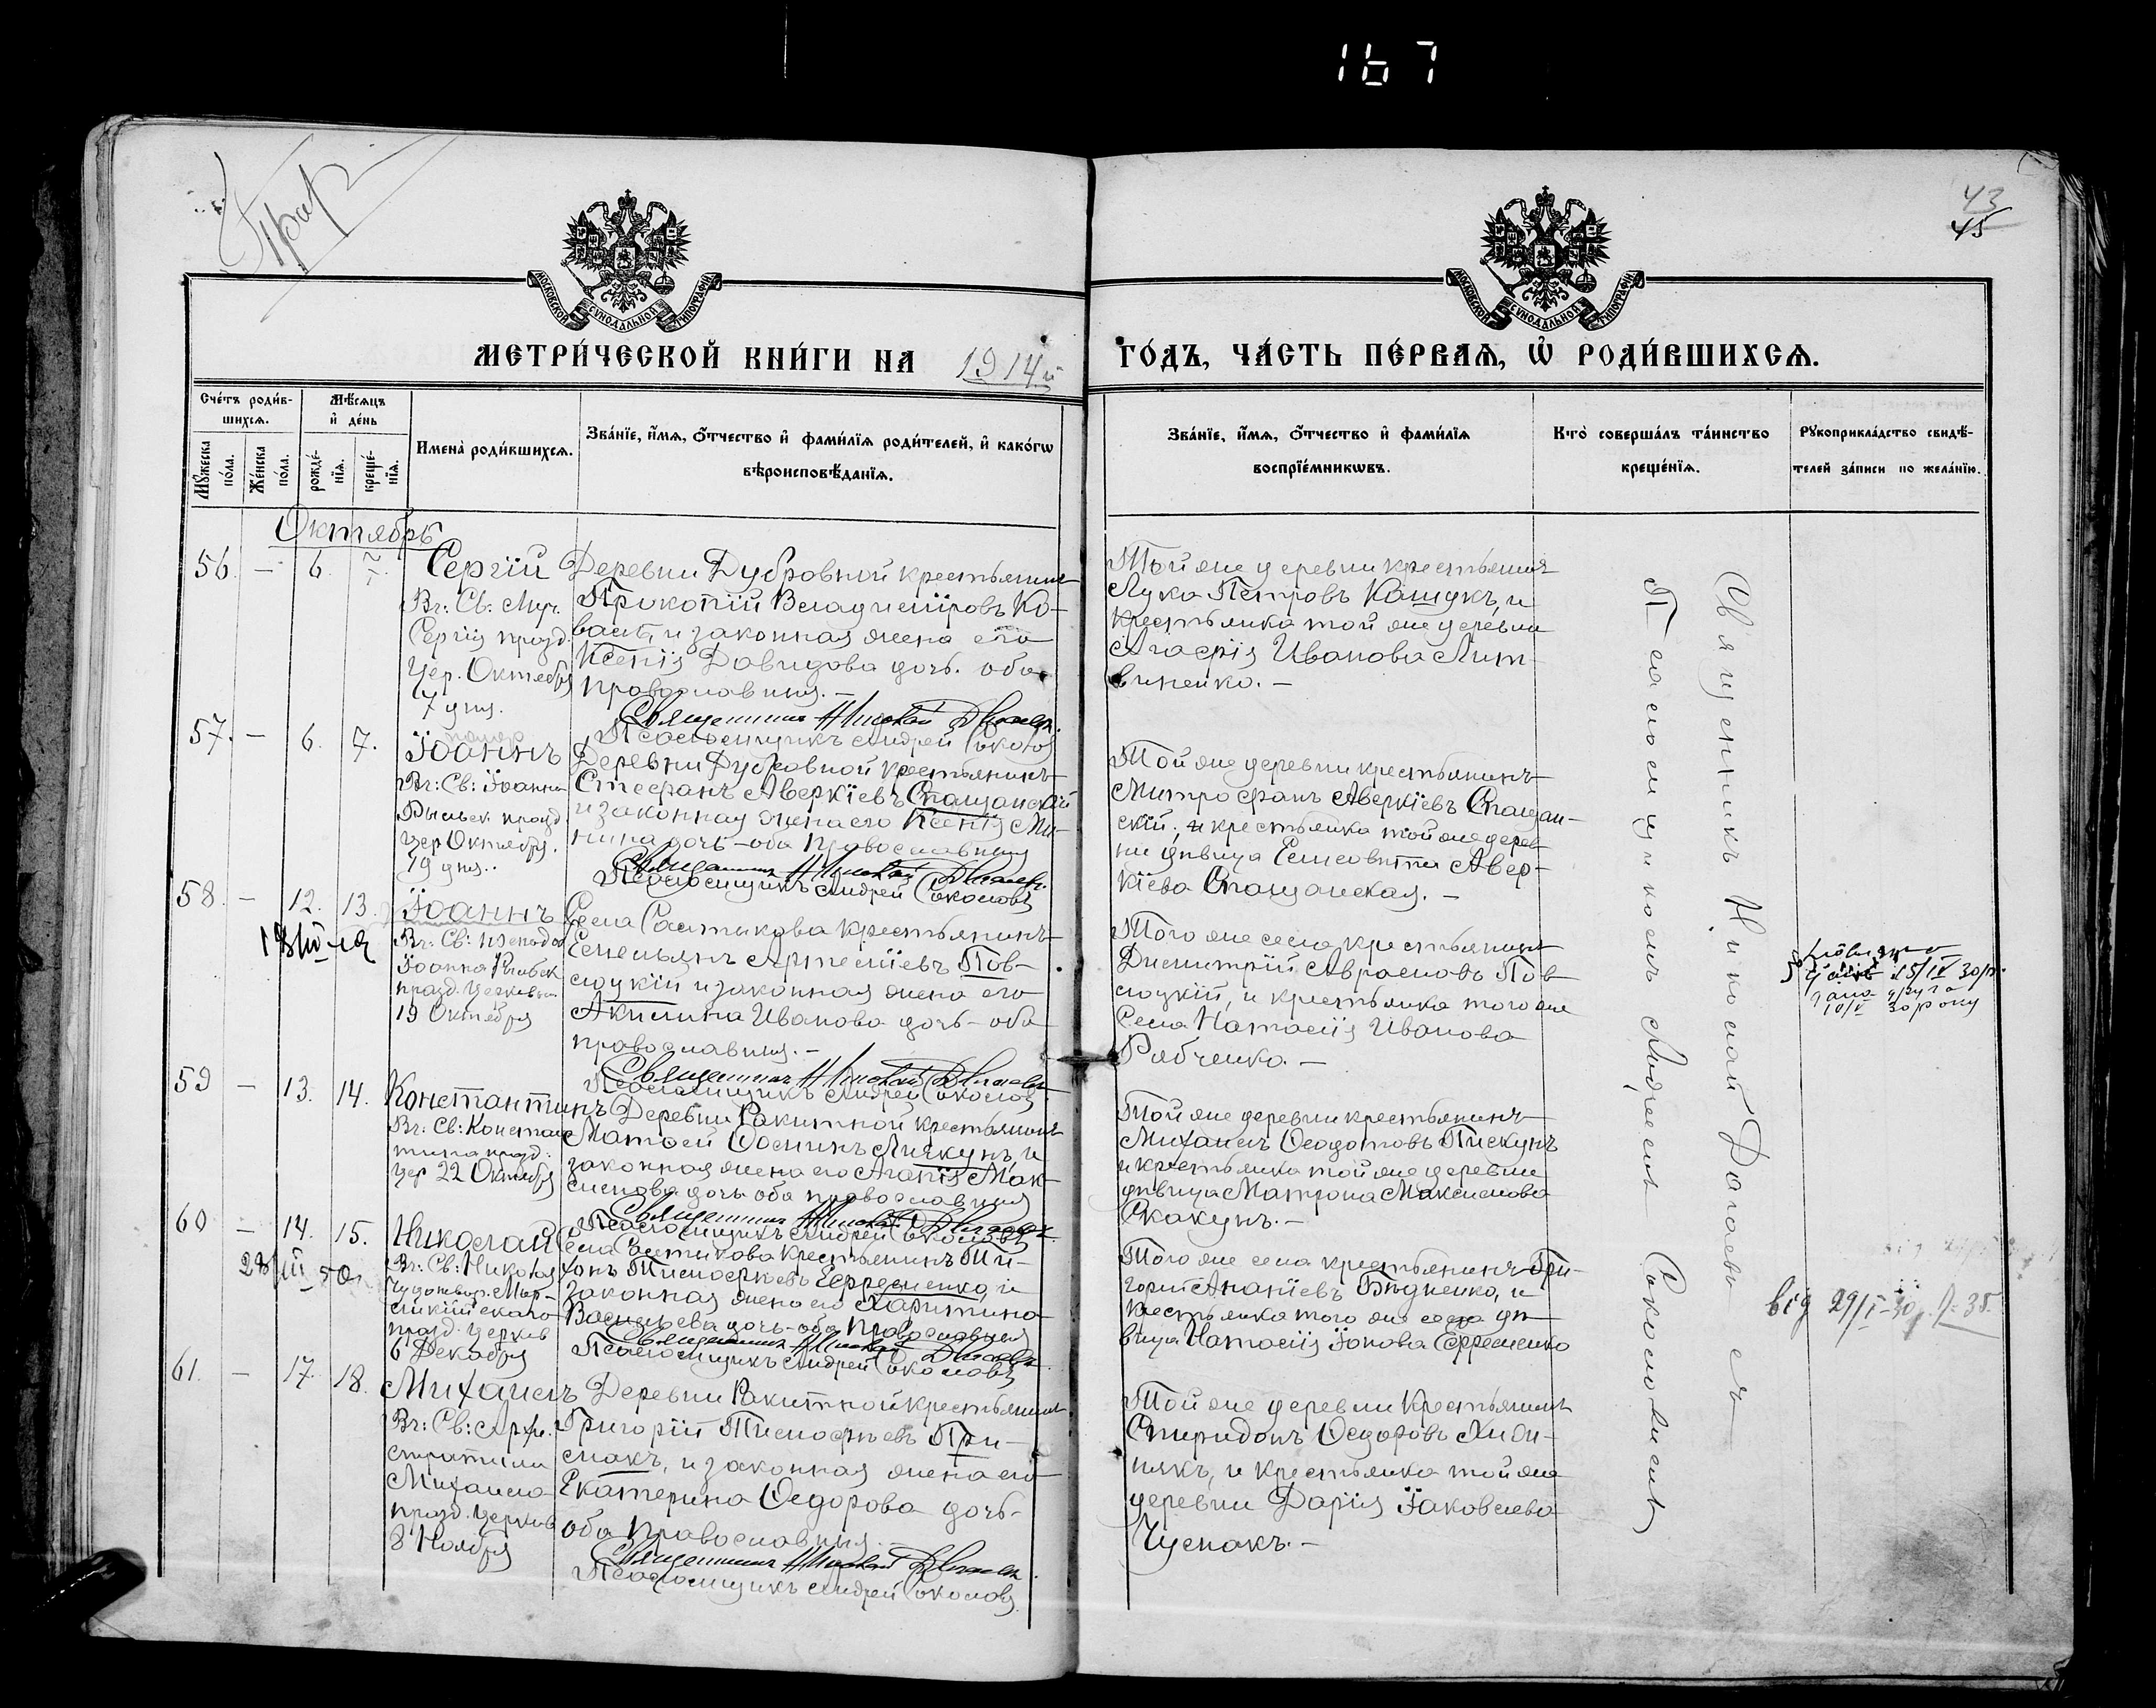 167
43
45
МОСКОВСКОЙ СѴНОДАЛЬНОЙ ТИПОГРАФІИ
МОСКОВСКОЙ СѴНОДАЛЬНОЙ ТИПОГРАФІИ
МЕТРИ́ЧЕСКОЙ КНИ́ГИ НА 1914й
ГО́ДЪ, ЧА́СТЬ ПЕ́РВАЯ, Ѡ҆ РОДИ́ВШИХСЯ.
Сче́тъ роди́в-
шихся.
Мѣ́сяцъ
и҆ де́нь
Мꙋ́жеска по́ла.
Же́нска по́ла.
рожде́-
нїя.
креще́-
нїя.
Имена̀ роди́вшихся.
Зва́нїе, и҆́мя, ѻ҆́тчество и҆ фами́лїя роди́телей, и҆ како́гѡ
вѣроисповѣ́данїя.
Зва́нїе, и҆́мя, ѻ҆́тчество и҆ фами́лїя
воспрїе́мникѡвъ.
Кто̀ соверша́лъ та́инство
креще́нїя.
Рꙋкоприкла́дство свидѣ́-
телей за́писи по жела́нїю.
Октябрь
56. — 6. 7.
Сергій
Въ: Св: Муч.
Сергія празд.
Цер. Октября
7 дня.
Деревни Дубровной крестьянинъ
Прокопій Владиміровъ Ко-
валь, и законная жена его
Ксенія Давидова дочь. оба
православныя. —
Священникъ Николай
Псаломщикъ Андрей Соколовъ
Той же деревни крестьянинъ
Лука Петровъ Кашукъ, и
крестьянка той же деревни
Агафія Иванова Лит-
виненко. —
57. — 6. 7.
помер
Іоаннъ
Въ: Св: Іоанна
Рыльск. празд.
Цер Октября.
19 дня..
Деревни Дубровной крестьянинъ
Стефанъ Аверкіевъ Спащанскій
и законная жена его Ксенія Ми-
нина дочь — оба православныя
Священникъ Николай
Псаломщикъ Андрей Соколовъ
Той же деревни крестьянинъ
Митрофанъ Аверкіевъ Спащан-
скій, и крестьянка той же дерев
ни дѣвица Елисавета Авер-
кіева Спащанская. —
58. — 12. 13.
Іоаннъ
Въ: Св: преподоб
Іоанна Рыльск
празд. Церковью
19 Октября
Села Ростикова крестьянинъ
Емельянъ Артеміевъ Пов-
лоцкій и законная жена его
Акилина Иванова дочь — оба
православныя. —
Священникъ Николай
Псаломщикъ Андрей Соколовъ
Того же села крестьянинъ
Димитрій Авраамовъ Пов
лоцкій, и крестьянка того же
Села Наталія Иванова
Рябченко. —
15/IV 30р.
10/V 30 року
59 — 13. 14.
Константинъ
Въ: Св: Констан
тина празд:
Цер 22 Октября
Деревни Ракитной крестьянинъ
Матѳей Ѳоминъ Личкунъ, и
законная жена его Агапія Мак-
симова дочь оба православныя
Священникъ Николай
Псаломщикъ Андрей Соколовъ
Той же деревни крестьянинъ
Михаилъ Ѳеодотовъ Пискунъ
и крестьянка той же деревни
дѣвица Матрона Максимова
Скакунъ. —
60 — 14. 15.
Николай
Въ: Св: Николая
Чудотвор. Мѵр-
ликійскаго
празд. церков
6 Декабря
Села Ростикова крестьянинъ Ти-
хонъ Тимоѳеевъ Ефременко, и
законная жена его Харитина
Васильева дочь — оба православныя
Священникъ Николай
Псаломщикъ Андрей Соколовъ
Того же села крестьянинъ Гри-
горій Ананіевъ Бѣдненко, и
крестьянка того же села дѣ
вица Наталія Іонова Ефременко
від 29/I-30р.
61. — 17. 18.
Михаилъ
Въ: Св: Архи.
стратига
Михаила
празд. церков
8 Ноября
Деревни Ракитной крестьянинъ
Григорій Тимоѳеевъ При-
макъ, и законная жена его
Екатерина Ѳеодорова дочь —
оба православныя.
Священникъ Николай
Псаломщикъ Андрей Соколовъ
Той же деревни крестьянинъ
Спиридонъ Ѳедоровъ Хиби-
някъ, и крестьянка той же
деревни Дарія Іаковлева
Чумакъ. —
Священникъ Николай
Псаломщикомъ Андреемъ Соколовымъ